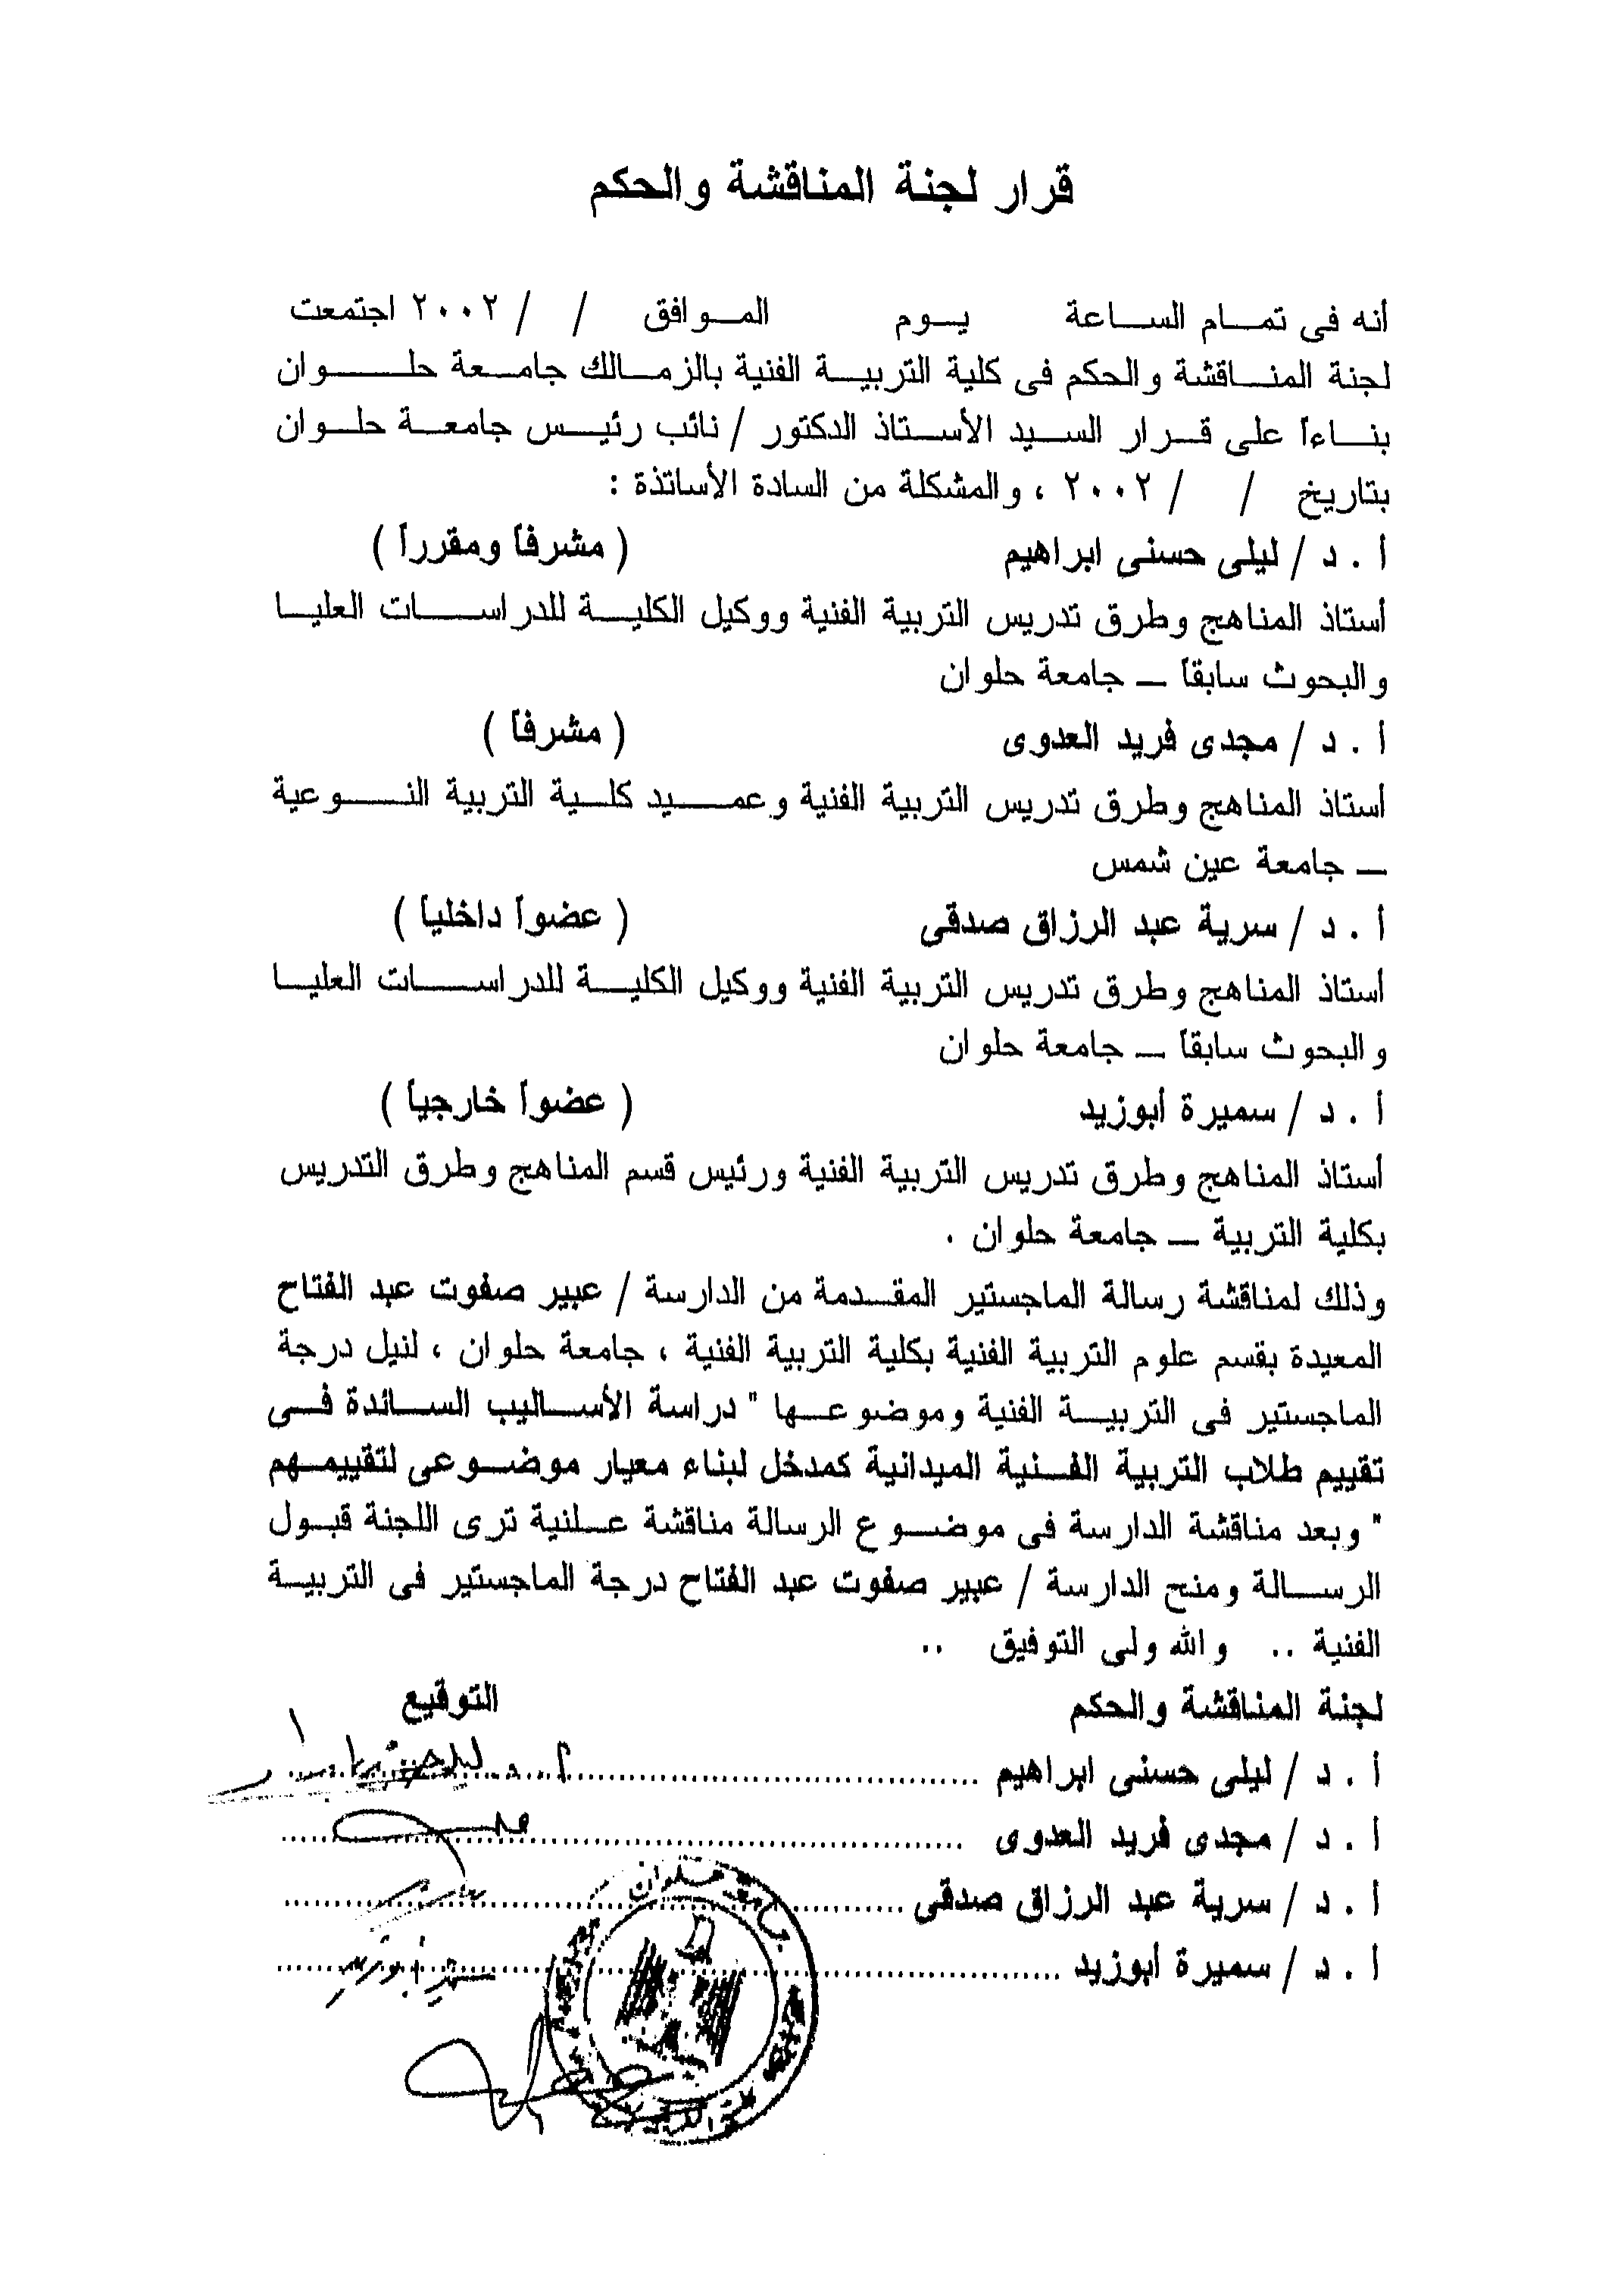 قرار لجنة المناقشة والحكم
أنه فى تمام الساعة يوم الموافق / / ٢٠٠٢ اجتمعت
لجنة المناقشة والحكم فى كلية التربية الفنية بالزمالك جامعة حلوان
بناءاً على قرار السيد الأستاذ الدكتور / نائب رئيس جامعة حلوان
بتاريخ / / ٢٠٠٢ ، والمشكلة من السادة الأساتذة :
أ . د / ليلى حسنى ابراهيم ( مشرفاً ومقرراً )
أستاذ المناهج وطرق تدريس التربية الفنية ووكيل الكلية للدراسات العليا
والبحوث سابقاً – جامعة حلوان
أ . د / مجدى فريد العدوى ( مشرفاً )
أستاذ المناهج وطرق تدريس التربية الفنية وعميد كلية التربية النوعية
– جامعة عين شمس
أ . د / سرية عبد الرزاق صدقى ( عضواً داخلياً )
أستاذ المناهج وطرق تدريس التربية الفنية ووكيل الكلية للدراسات العليا
والبحوث سابقاً – جامعة حلوان
أ . د / سميرة أبوزيد ( عضواً خارجياً )
أستاذ المناهج وطرق تدريس التربية الفنية ورئيس قسم المناهج وطرق التدريس
بكلية التربية – جامعة حلوان .
وذلك لمناقشة رسالة الماجستير المقدمة من الدارسة / عبير صفوت عبد الفتاح
المعيدة بقسم علوم التربية الفنية بكلية التربية الفنية ، جامعة حلوان ، لنيل درجة
الماجستير فى التربية الفنية وموضوعها " دراسة الأساليب السائدة فى
تقييم طلاب التربية الفنية الميدانية كمدخل لبناء معيار موضوعى لتقييمهم
" وبعد مناقشة الدارسة فى موضوع الرسالة مناقشة علنية ترى اللجنة قبول
الرسالة ومنح الدارسة / عبير صفوت عبد الفتاح درجة الماجستير فى التربية
الفنية .. والله ولى التوفيق ..
لجنة المناقشة والحكم التوقيع
أ . د / ليلى حسنى ابراهيم
أ . د / مجدى فريد العدوى
أ . د / سرية عبد الرزاق صدقى
أ . د / سميرة أبوزيد سميرة أبوزيد
جامعة حلوان